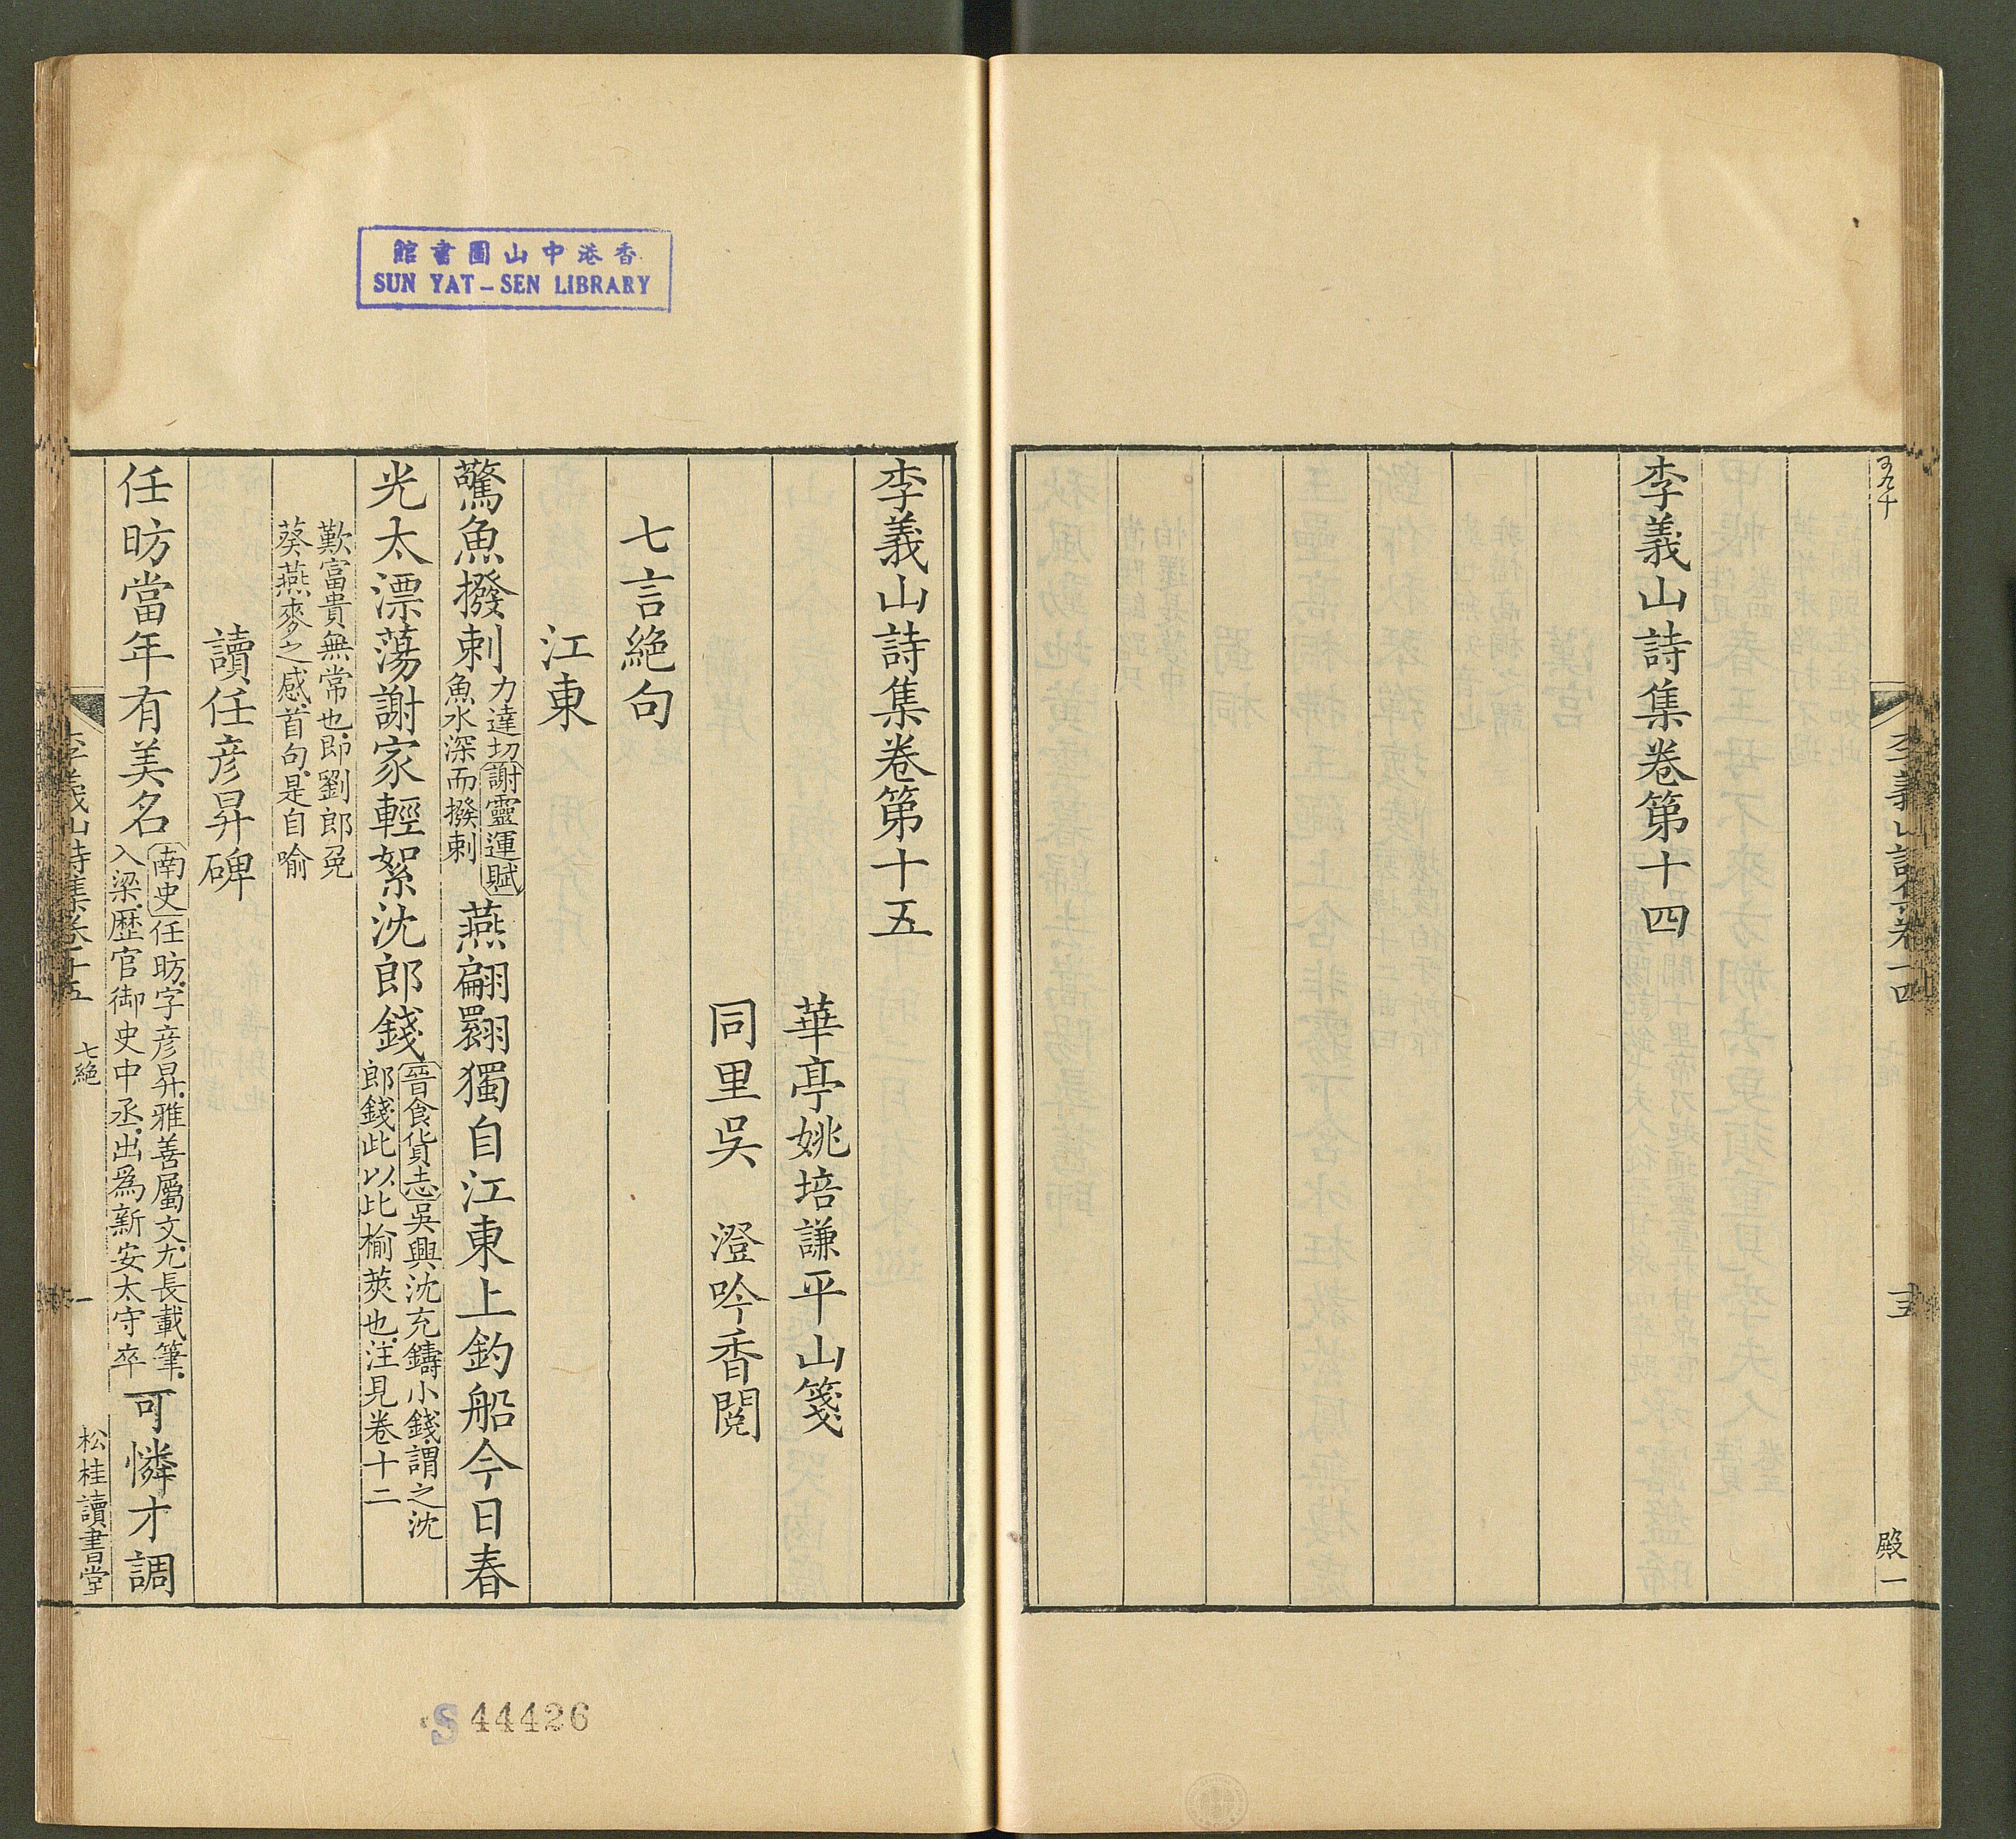 李義山詩集卷第十四
殿一
香港中山圖書館
SUN YAT-SEN LIBRARY
李義山詩集卷第十五
華亭姚培謙平山箋
同里吳　澄吟香閱
七言絕句
江東
驚魚撥剌
力達切謝靈運賦
魚水深而撥剌
燕翩翾獨自江東上釣船今日春
光太漂蕩謝家輕絮沈郎錢
晉食貨志吳興沈充鑄小錢謂之沈
郎錢此以比榆莢也注見卷十二
歎富貴無常也即劉郎兔
葵燕麥之感首句是自喻
讀任彦昇碑
任昉當年有美名
南史任昉字彦昇雅善屬文尤長載筆
入梁歴官御史中丞出為新安太守卒
可憐才調
七絕
一
松桂讀書堂
S 44426